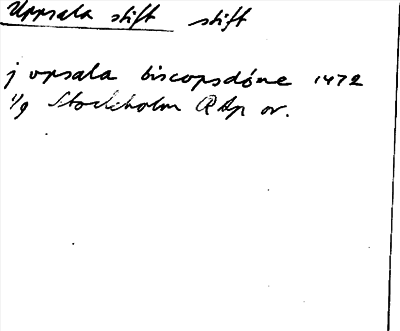 Uppsala stift stift
j upsala biscopsdóme 1472
1/9 Stockholm RAp or.